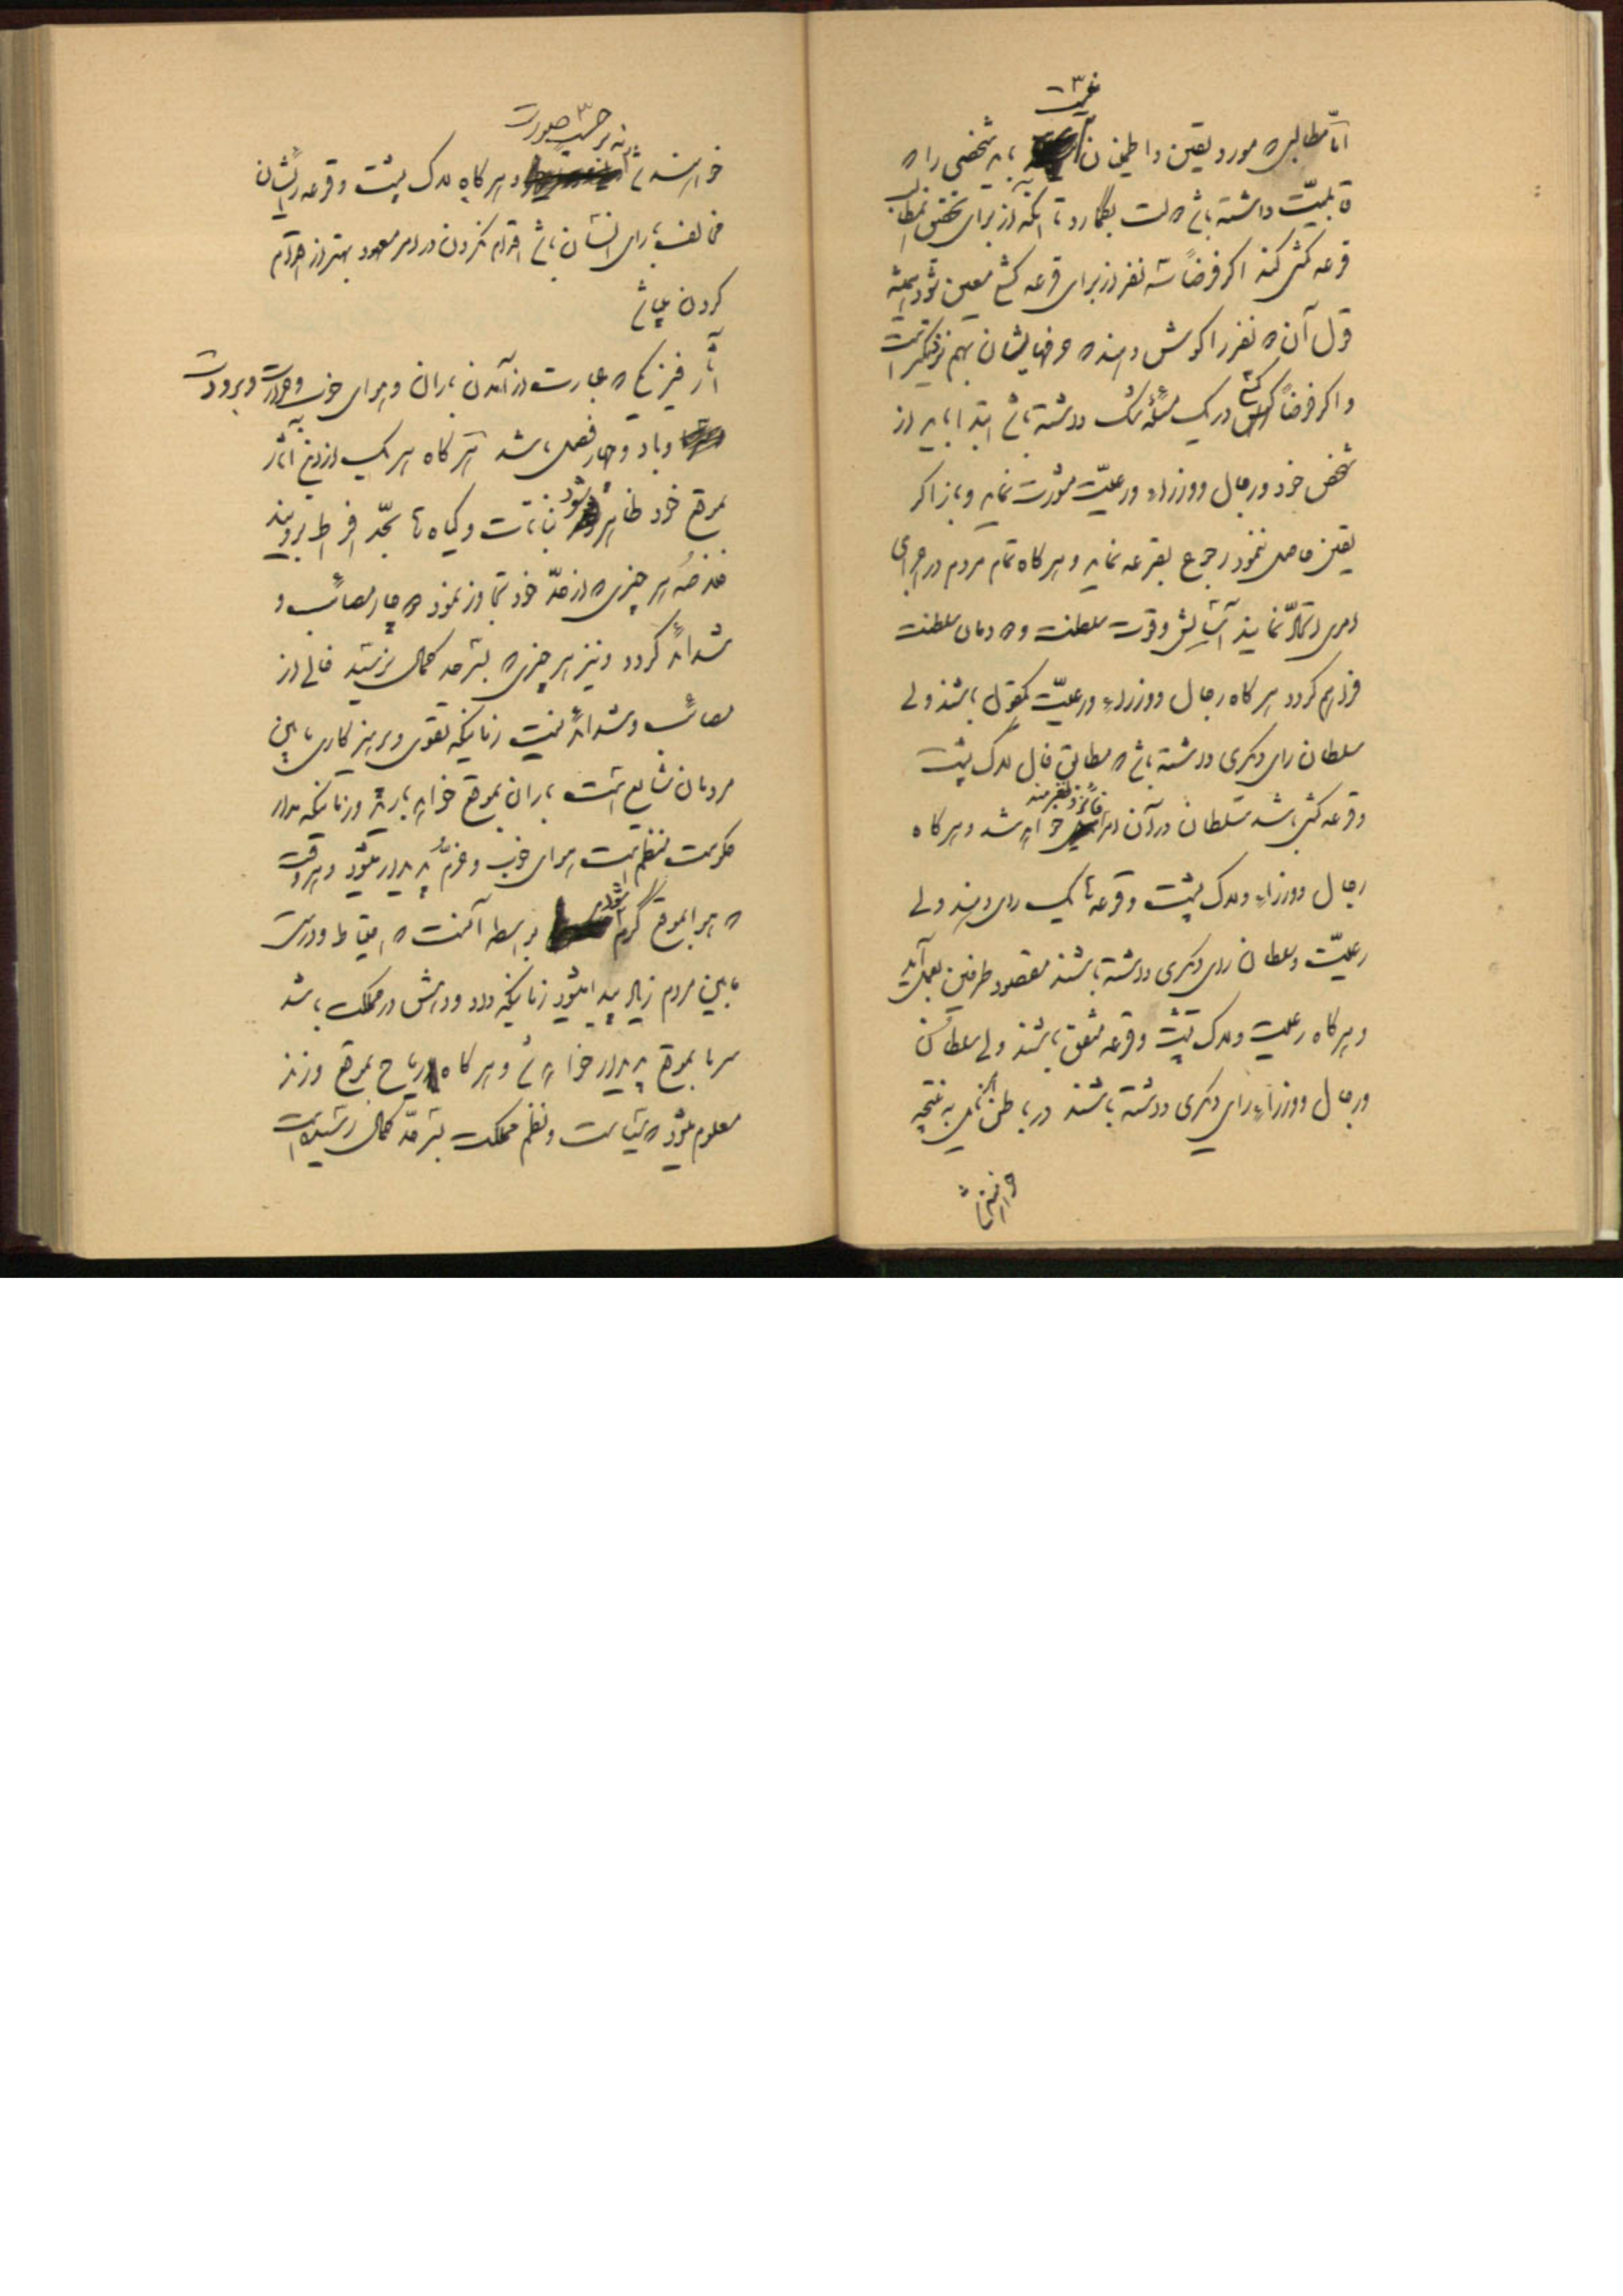 نیست
امّا مطالبی که مورد یقین و اطمینان باید شخصی را که
قابلیّت داشته باشد بگمارد تا آنکه از برای تحقیق مطالب
قرعه کشی کند اگر فرضاً سه نفر از برای قرعه کشی معین شود همیشه
قول آن دو نفر را گوش دهند که حرفهایشان بهم نزدیکتر است
و اگر فرضاً کسی در یک مسئله شک داشته باشد ابتدا باید از
شخص خود و رجال و وزراء و رعیّت مشورت نماید و باز اگر
یقین حاصل ننمود رجوع بقرعه نماید و هرگاه تمام مردم در اجرای
امری استمداد نمایند آسایش و قوت سلطنت و دودمان سلطنت
فراهم گردد هرگاه رجال و وزراء و رعیّت یکقول باشند ولی
سلطان رای دیگری داشته باشد که مطابق فال لاک پشت
و قرعه کشی باشد سلطان در آن امر فائز و بهره مند خواهد شد و هرگاه
رجال و وزراء و لاک پشت و قرعه تماماً یک رای دهند ولی
رعیّت و سلطان رای دیگری داشته باشند مقصود طرفین بعمل آید
و هرگاه رعیت و لاک پشت و قرعه متفق باشند ولی سلطان
و رجال و وزراء رای دیگری داشته باشند در باطن به نتیجه
خواهند
بر حسب صورت
خواهند شد و هرگاه لاک پشت و قرعه رایشان
مخالف با رای انسان باشد اقدام نکردن در امر معهود بهتر از اقدام
کردن میباشد
آثار فیزیکی که عبارت از آمدن باران و هوای خوب و حرارت و برودت
و باد و چهار فصل باشد هر گاه هر یک از این آثار
بموقع خود ظاهر شود نباتات و گیاه ها بحدّ افراط برویند
هر چیزی که از حدّ خود تجاوز نمود دچار مصائب و
شدائد گردد و نیز هر چیزی که بسر حد کمال نرسید خالی از
مصائب و شدائد نیست زمانیکه تقوی و پرهیزکاری مابین
مردمان شایع است باران بموقع خواهد بارید و زمانیکه مدار
حکومت منظم است هوای خوب و خرم پدیدار میشود و هر وقت
که هوا بموقع گرم شود بواسطه آنست که احتیاط و درستی
مابین مردم زیاد پیدا میشود زمانیکه داد و دانش در مملکت باشد
سرما بموقع پدیدار خواهد شد و هرگاه ریاح بموقع وزند
معلوم میشود که سیاست و نظم مملکت بسر حدّ کمال رسیده است